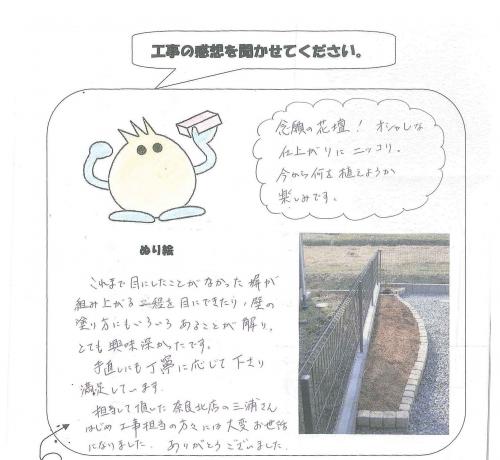 工事の感想を聞かせてください。
念願の花壇！オシャレな
仕上がりにニッコリ。
今から何を植えようか
楽しみです。
ぬり絵
これまで目にしたことがなかった塀が
組み上がる工程を目にできたり、壁の
塗り方にもいろいろあることが解り、
とても興味深かったです。
手直しにも丁寧に応じて下さり
満足しています。
担当して頂いた奈良北店の三浦さん
はじめ工事担当の方々には大変お世話
になりました。ありがとうございました。